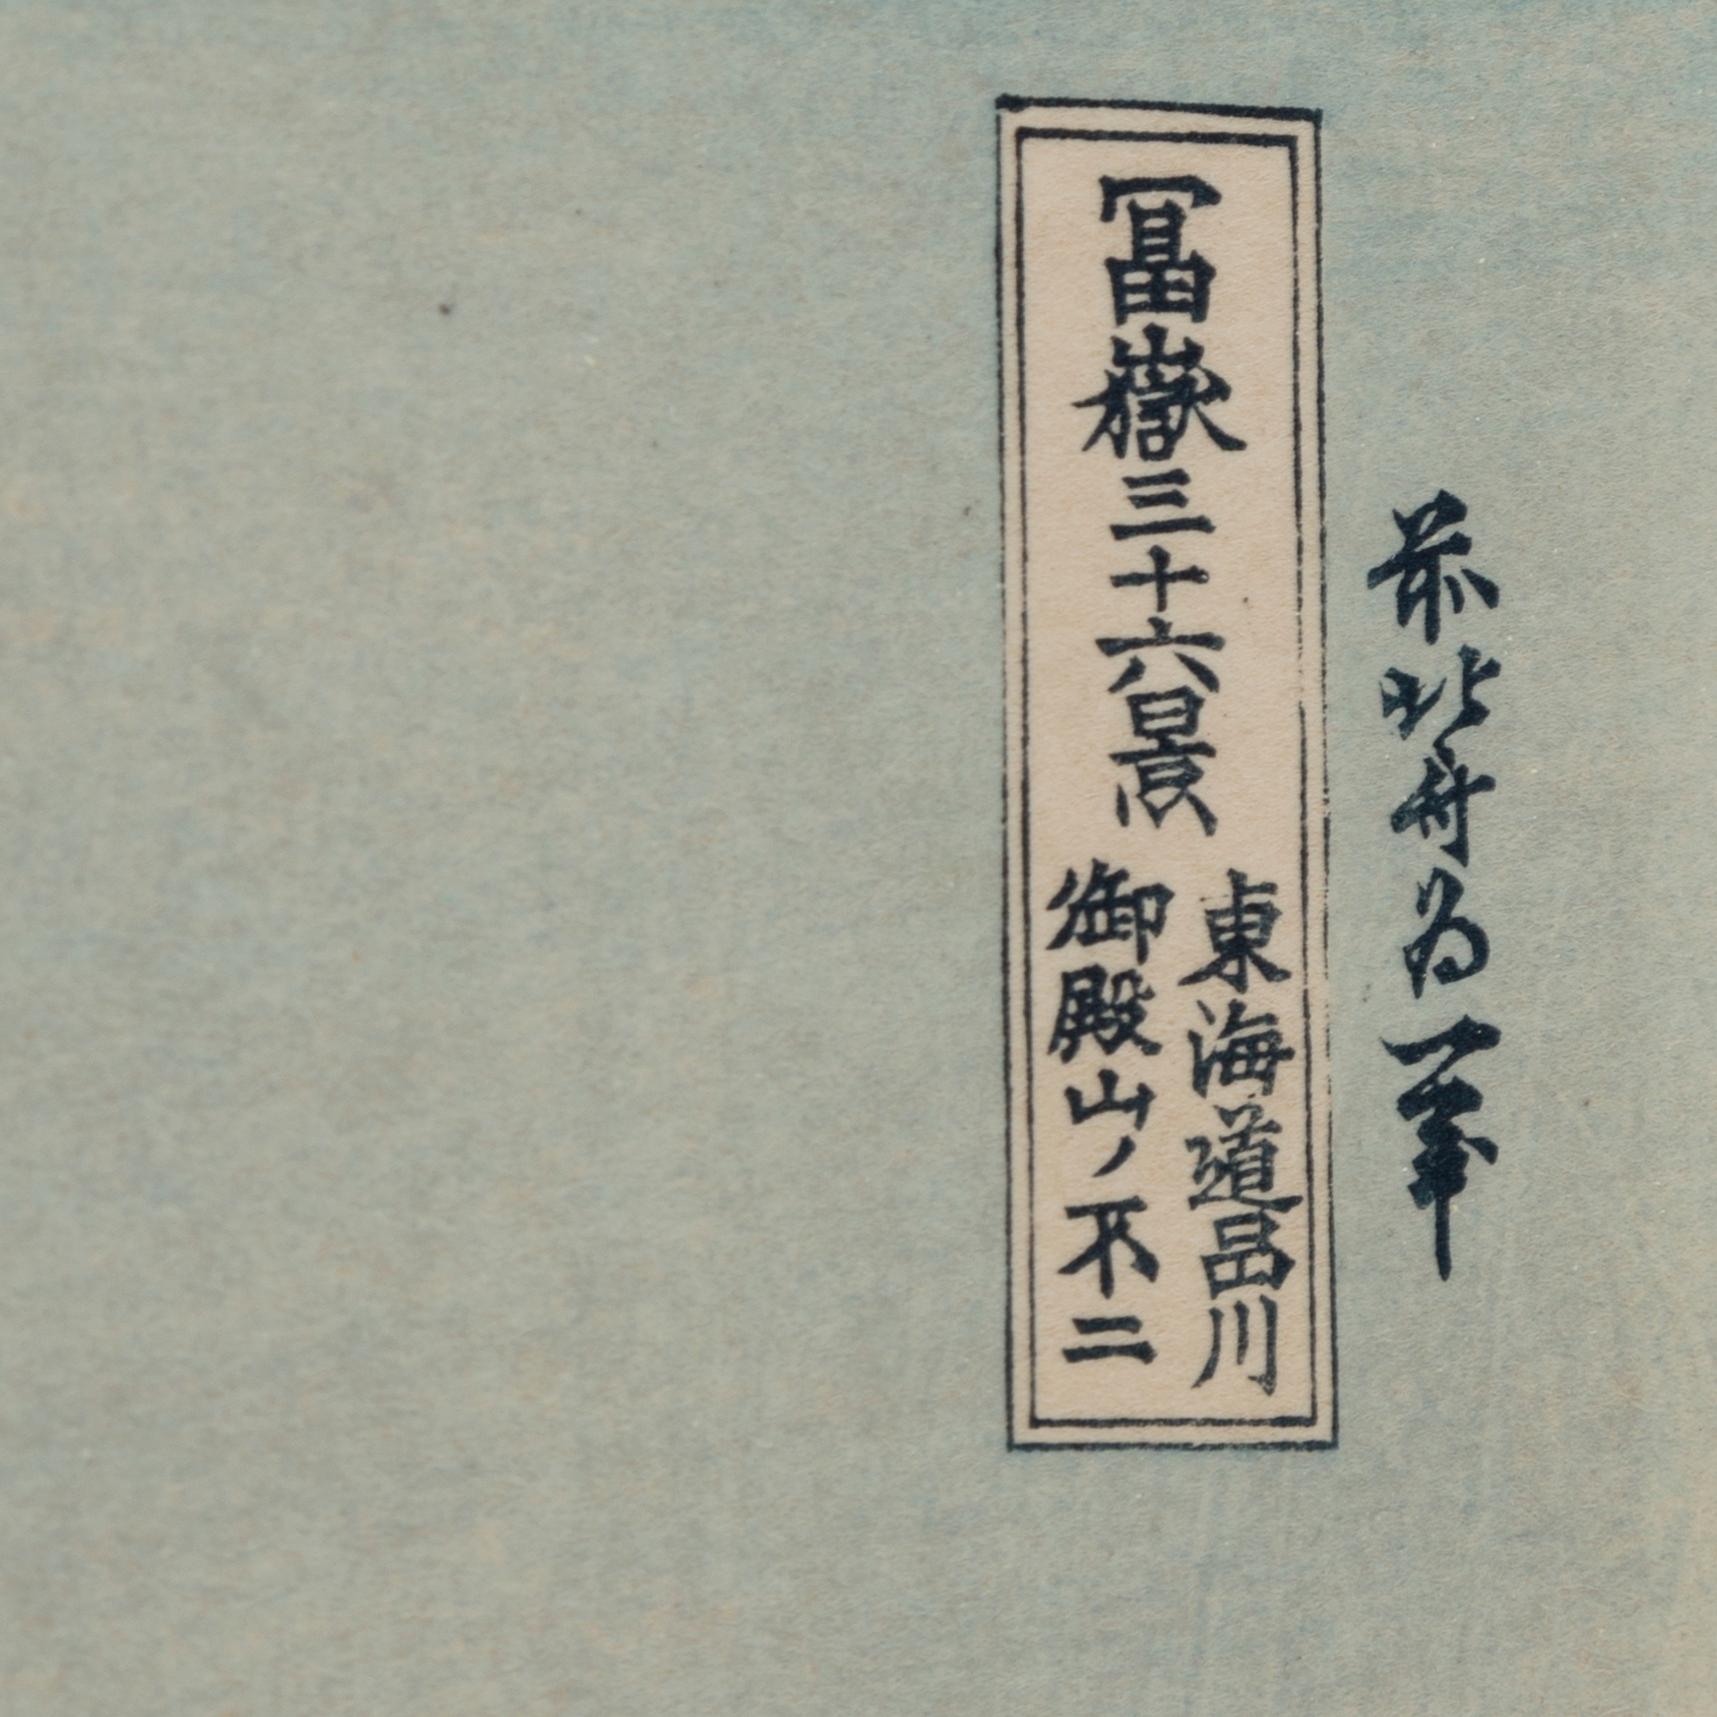 前北斎為一筆
冨嶽三十六景
東海道品川
御殿山ノ不二